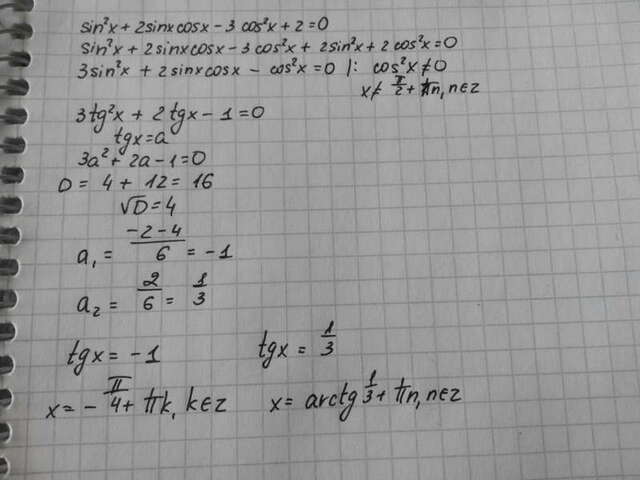 sin²x + 2sinxcosx - 3cos²x + 2 = 0
sin²x + 2sinxcosx - 3cos²x + 2sin²x + 2cos²x = 0
3sin²x + 2sinxcosx - cos²x = 0 |: cos²x ≠ 0
x ≠ π/2 + πn, n∈z
3tg²x + 2tgx - 1 = 0
tgx = a
3a² + 2a - 1 = 0
D = 4 + 12 = 16
√D = 4
a₁ = (-2-4)/6 = -1
a₂ = 2/6 = 1/3
tgx = -1 tgx = 1/3
x = -π/4 + πk, k∈z x = arctg 1/3 + πn, n∈z